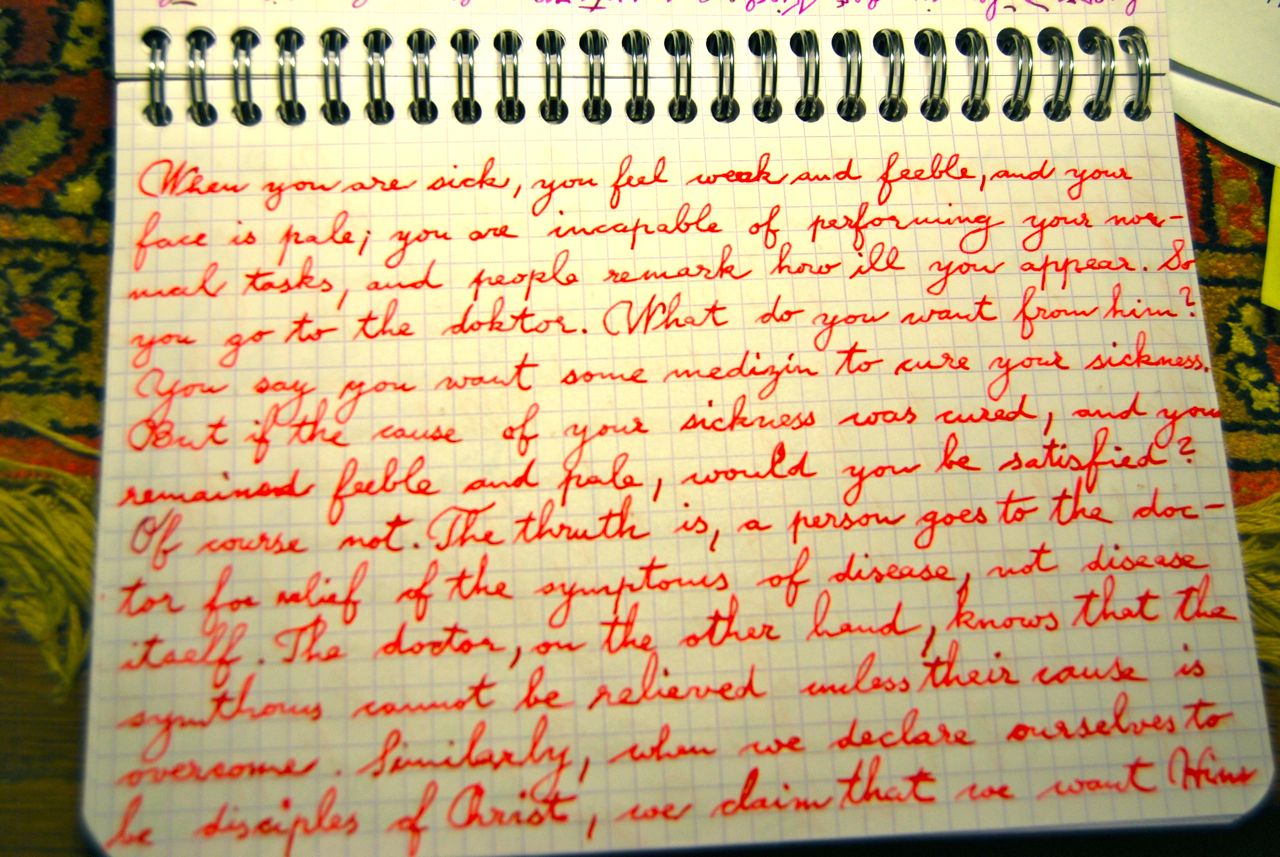 When you are sick, you feel weak and feeble, and your
face is pale; you are incapable of performing your nor-
mal tasks, and people remark how ill you appear. So
you go to the doktor. What do you want from him?
You say you want some medizin to cure your sickness.
But if the cause of your sickness was cured, and you
remained feeble and pale, would you be satisfied?
Of course not. The thruth is, a person goes to the doc-
tor for relief of the symptoms of disease, not disease
itself. The doctor, on the other hand, knows that the
symthoms cannot be relieved unless their cause is
overcome. Similarly, when we declare ourselves to
be disciples of Christ, we claim that we want Him